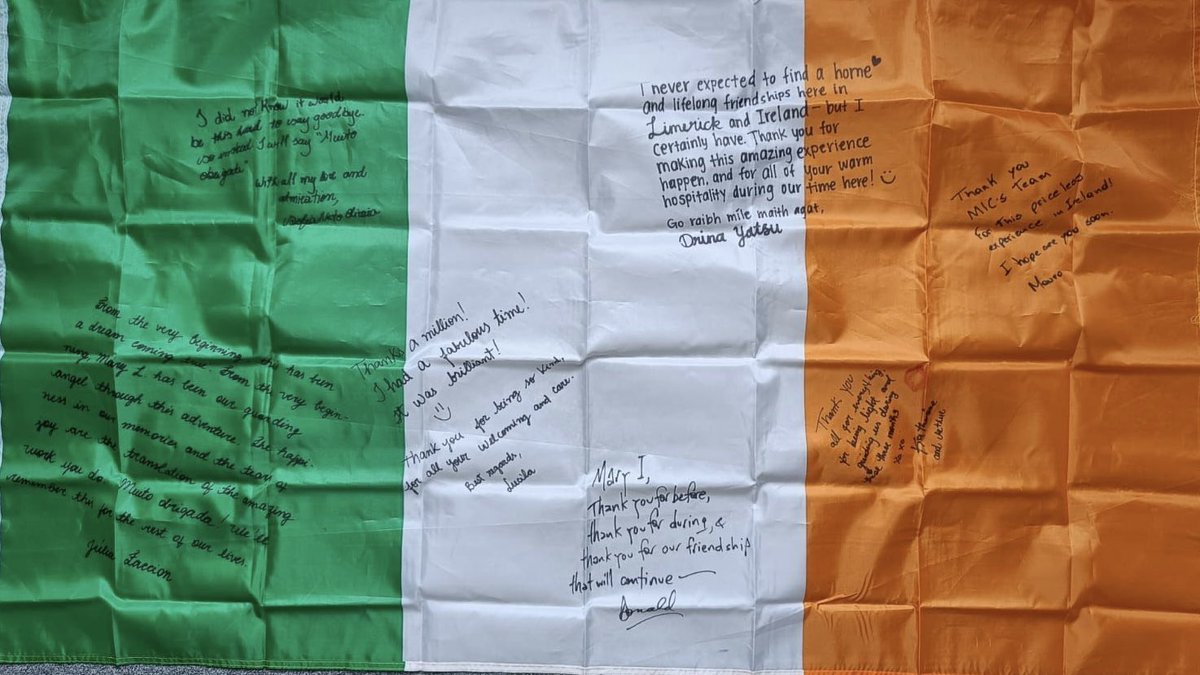 I did not know it would
be this hard to say goodbye.
so instead I will say "Muito
Obrigada"
With all my love and
admiration,
From the very beginning this has been
a dream coming true. From the very begin-
ning, Mary I. has been our guarding
angel through this adventure. The happi-
ness in our memories and the tears of
joy are the translation of the amazing
work you do. Muito obrigada! We'll
remember this for the rest of our lives.
Júlia
Thanks a million!
I had a fabulous time!
It was brilliant!
Thank you for being so kind,
for all your welcoming and care.
Best regards,
Luaila
I never expected to find a home
and lifelong friendships here in
Limerick and Ireland - but I
certainly have. Thank you for
making this amazing experience
happen, and for all of your warm
hospitality during our time here!
Go raibh mile maith agat,
Drina Yatsu
Mary I,
Thank you for before,
thank you for during, &
thank you for our friendship
that will continue
Donald
Thank you
MIC's Team
for this priceless
experience in Ireland!
I hope see you soon.
Mauro
Thank you
all for everything
for being light and
guiding us during
these three months
xo xo